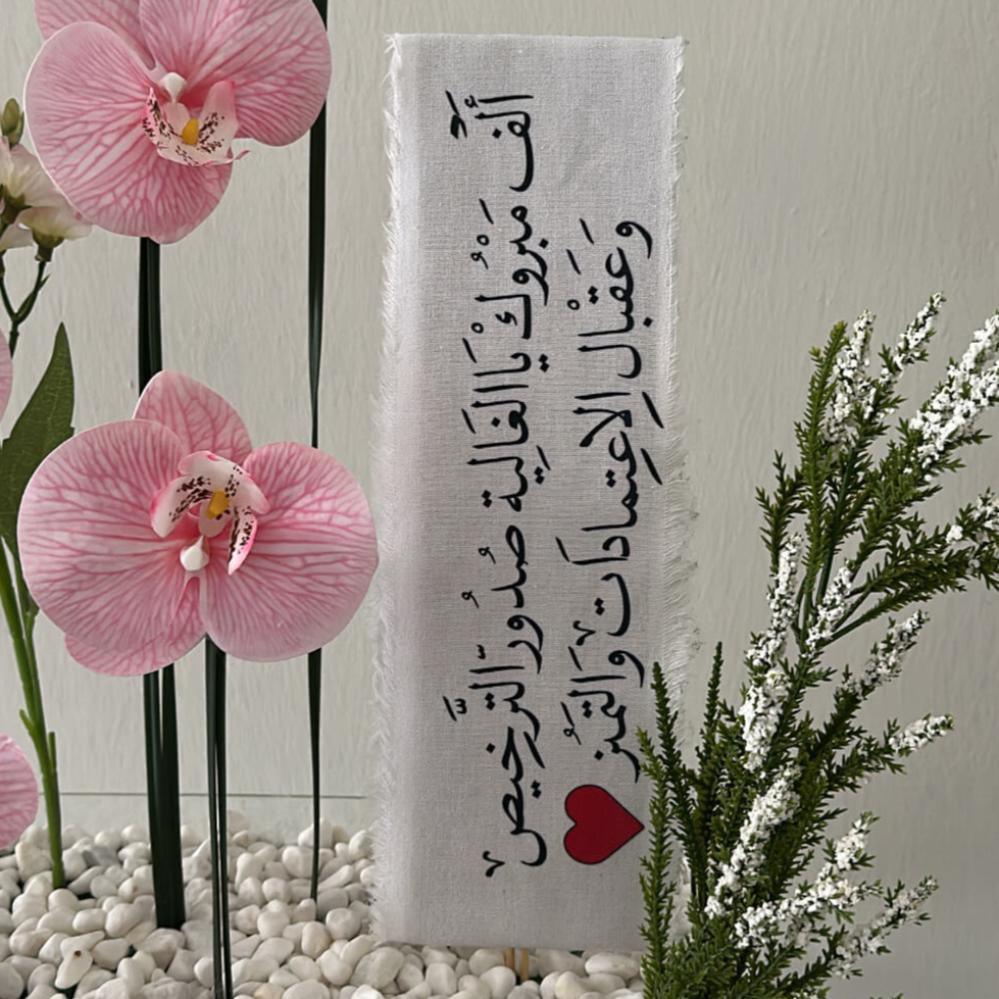 ألفَ مَبْرُوك يَا الغَالِية صُدُور التَّرخيص
وَعَقْبَال الِاعتِمادَات وَالتمَيز